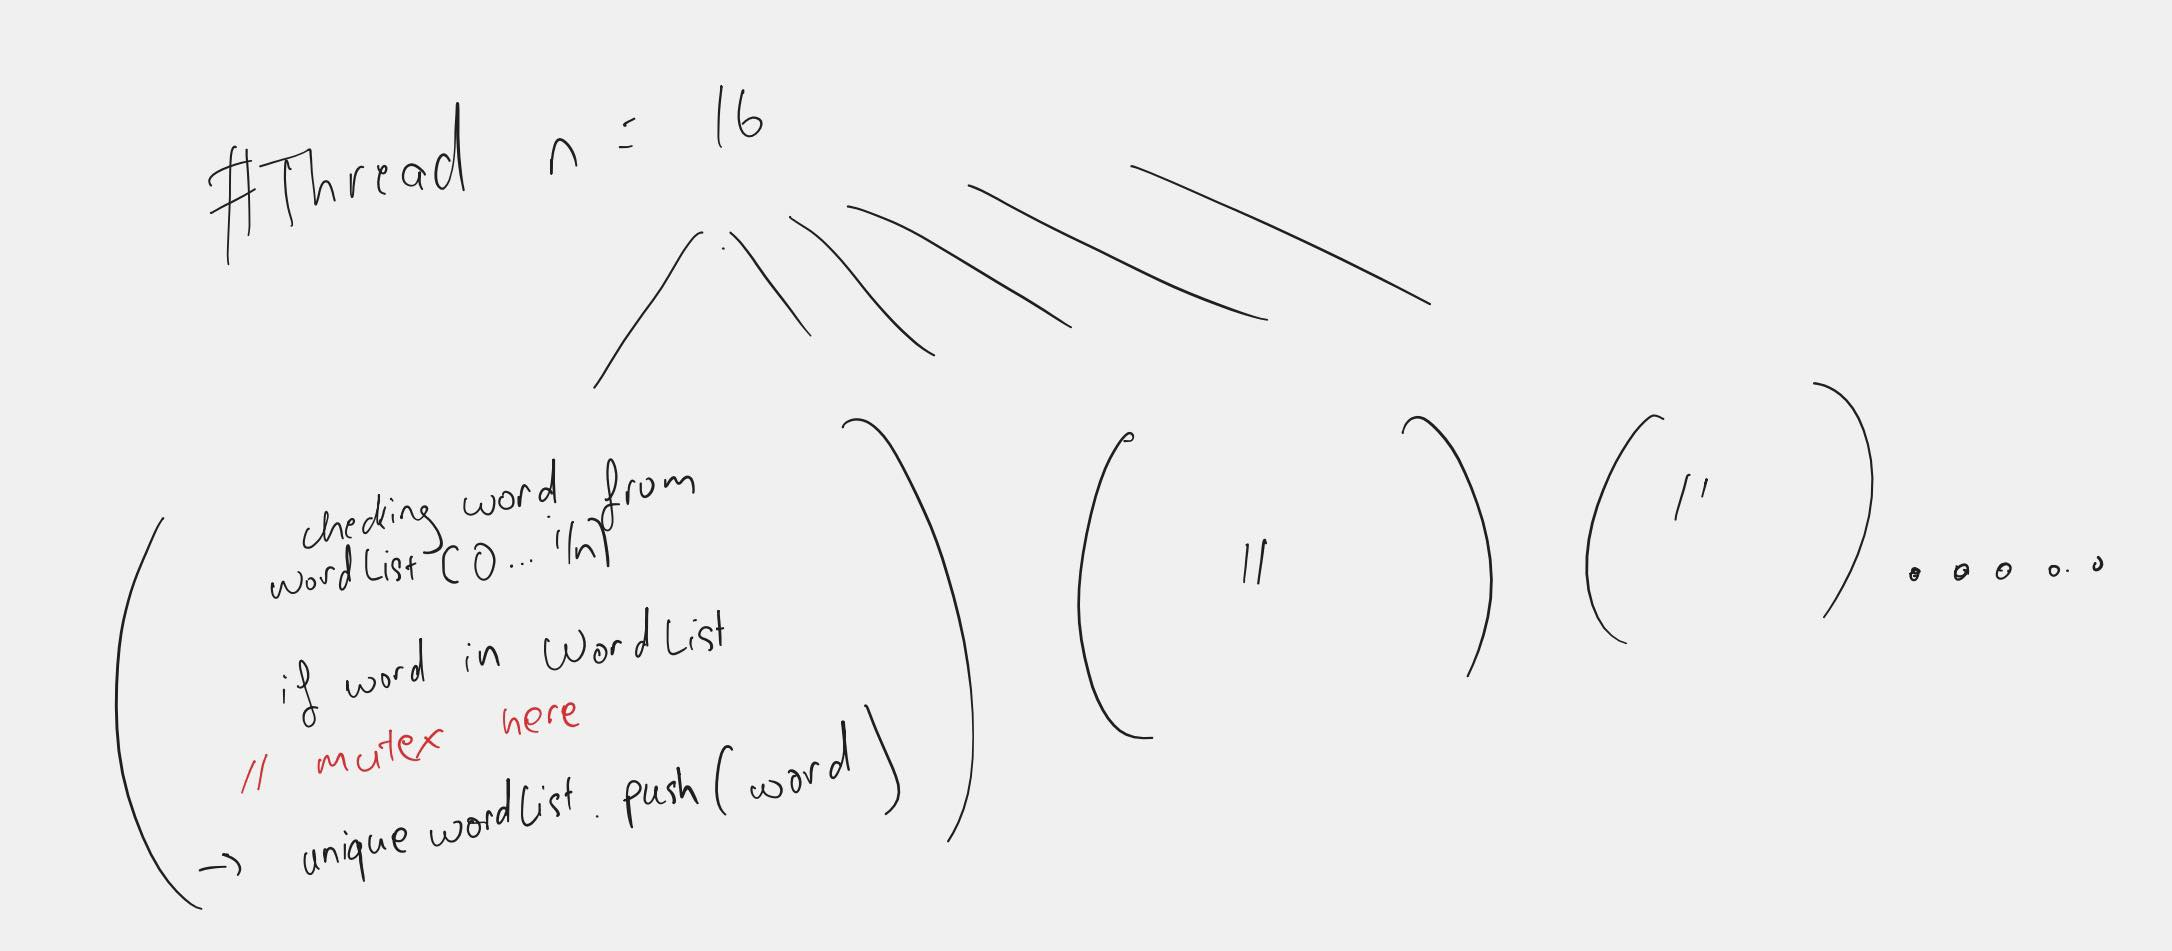 #Thread n = 16
checking word from
wordList (0... 1/n)
if word in WordList
// mutex here
→ unique wordList.push(word)
//
//